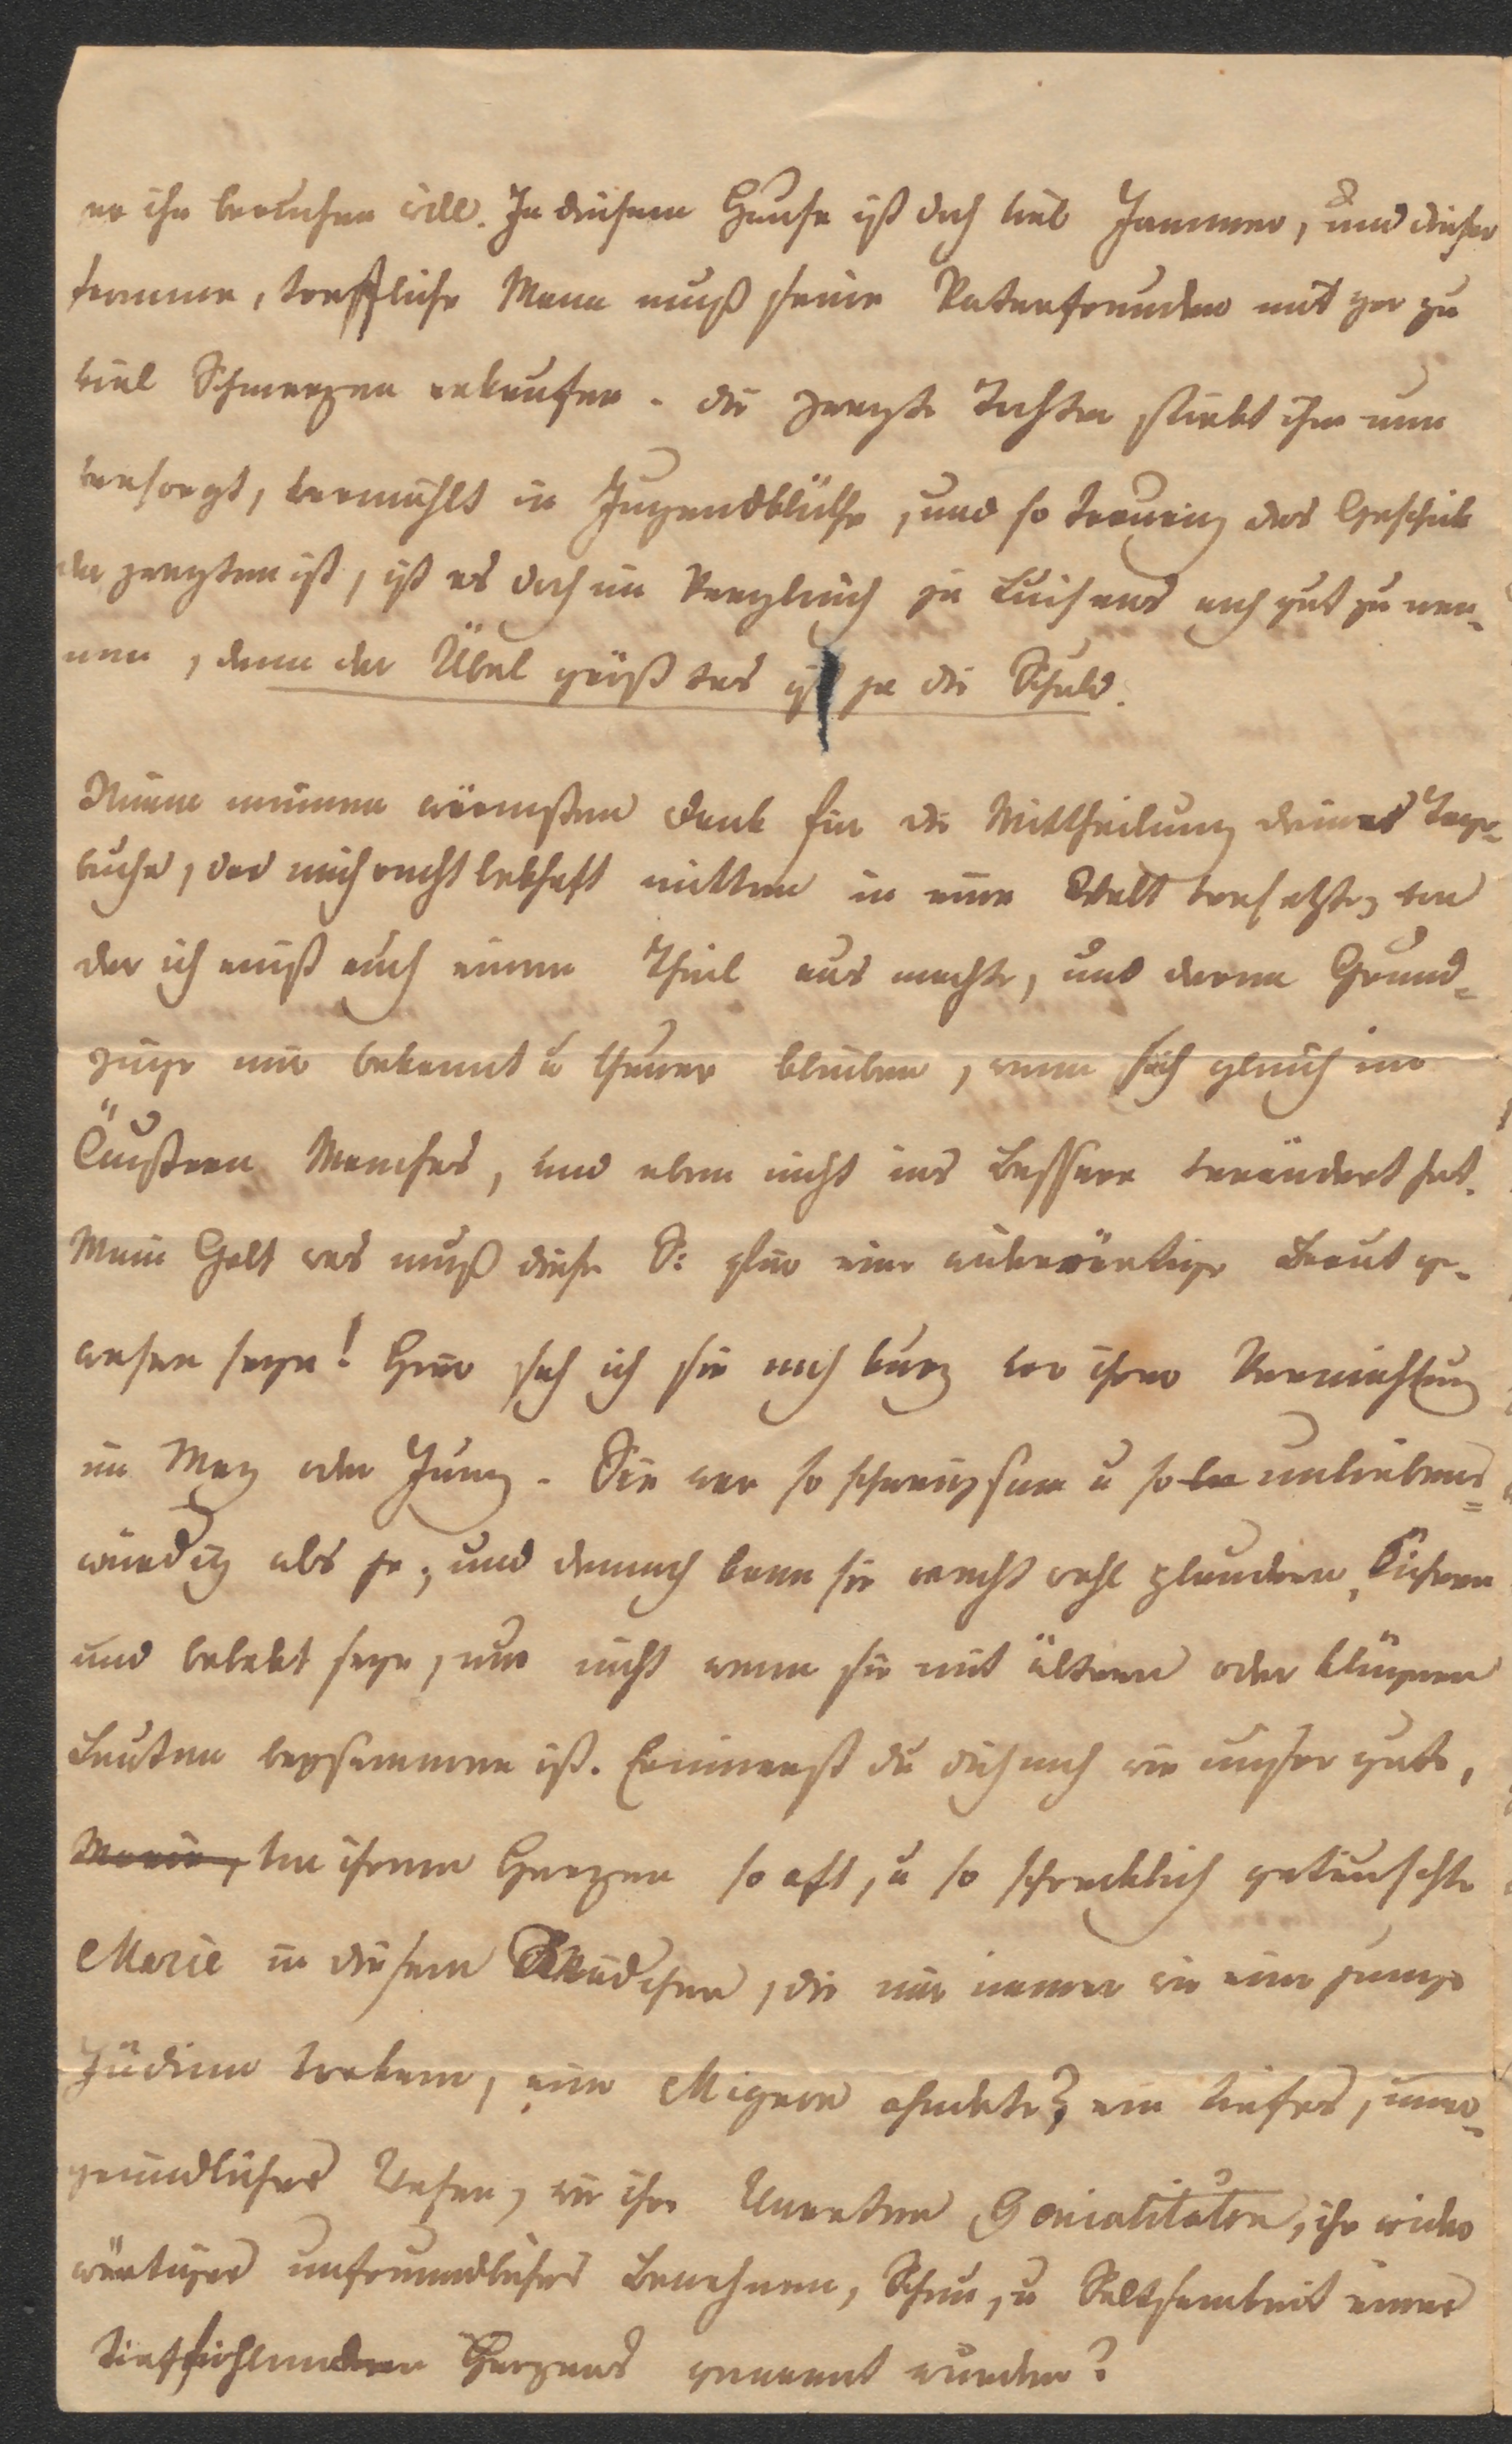 er ihn brauchen will. In diesem Hause ist doch viel Jammer, und dieser
fromme, treffliche Mann muß seine Vaterfreuden mit gar zu
viel Schmerzen erkaufen. die Tochter stirbt ihm nun
versorgt, vermählt in Jugendblüthe, und so traurig das Geschick
der ist, ist es doch im Vergleich zu Luisens noch gut zu nen-
nen, denn der Übel größtes ist ja die Schuld.
Nimm meinen wärmsten Dank für die Mittheilung deines Tage-
buchs, das mich recht lebhaft mitten in eine Welt versetzte, von
der ich einst auch einen Theil aus machte, und deren Grund-
züge mir bekannt u theuer bleiben, wenn sich gleich im
Äußeren Manches, und eben nicht ins Bessere verändert hat.
Mein Gott was muß diese S: für eine widerwärtige Braut ge-
wesen seyn! Hier sah ich sie noch kurz vor ihrer
im May oder Juny. Sie war so schweigsam u so unliebens=
würdig als je, und dennoch kann sie recht wohl plaudern, kichern
und belebt seyn, nur nicht wenn sie mit ältern oder klügern
Leuten beysammen ist. Erinnerst du dich noch wie unsre gute,
Marie, von ihrem Herzen so oft, u so schrecklich getäuschte
Marie in diesem Mädchen, die mir immer wie eine junge
Jüdinn vorkam, eine Mignon ahndete, ein tiefes, uner-
gründliches Wesen, wie ihre Unarten Genialitäten, ihr wider
wärtiges unfreundliches Benehmen, Scheu, u Seltsamkeit eines
tieffühlenden Herzens genannt wurden?